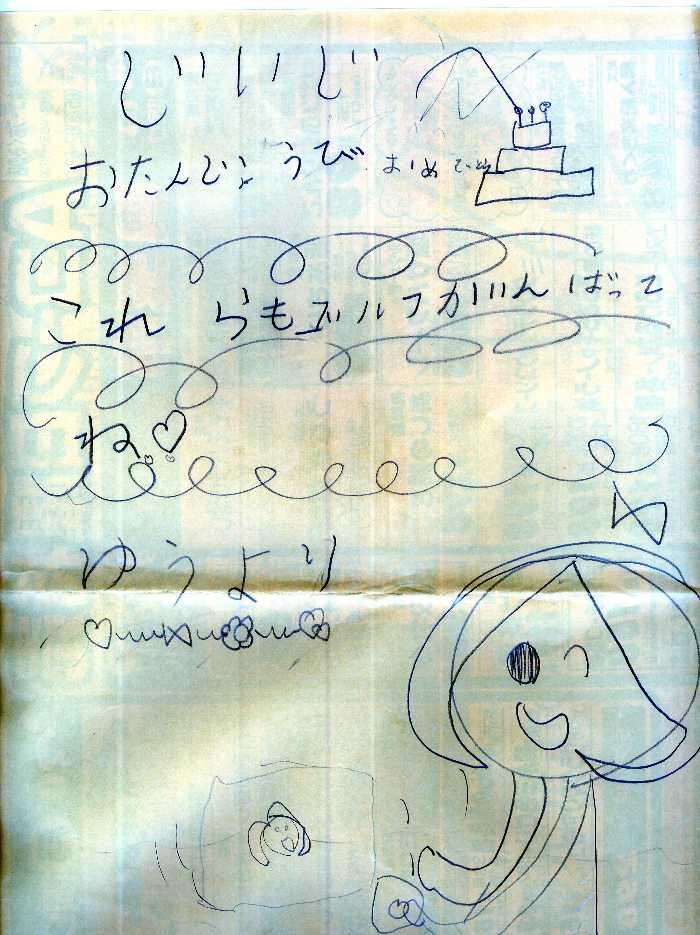 じいじ
おたんじょうび おめでとう
これ らもゴルフがんばって
ね♡
ゆうより